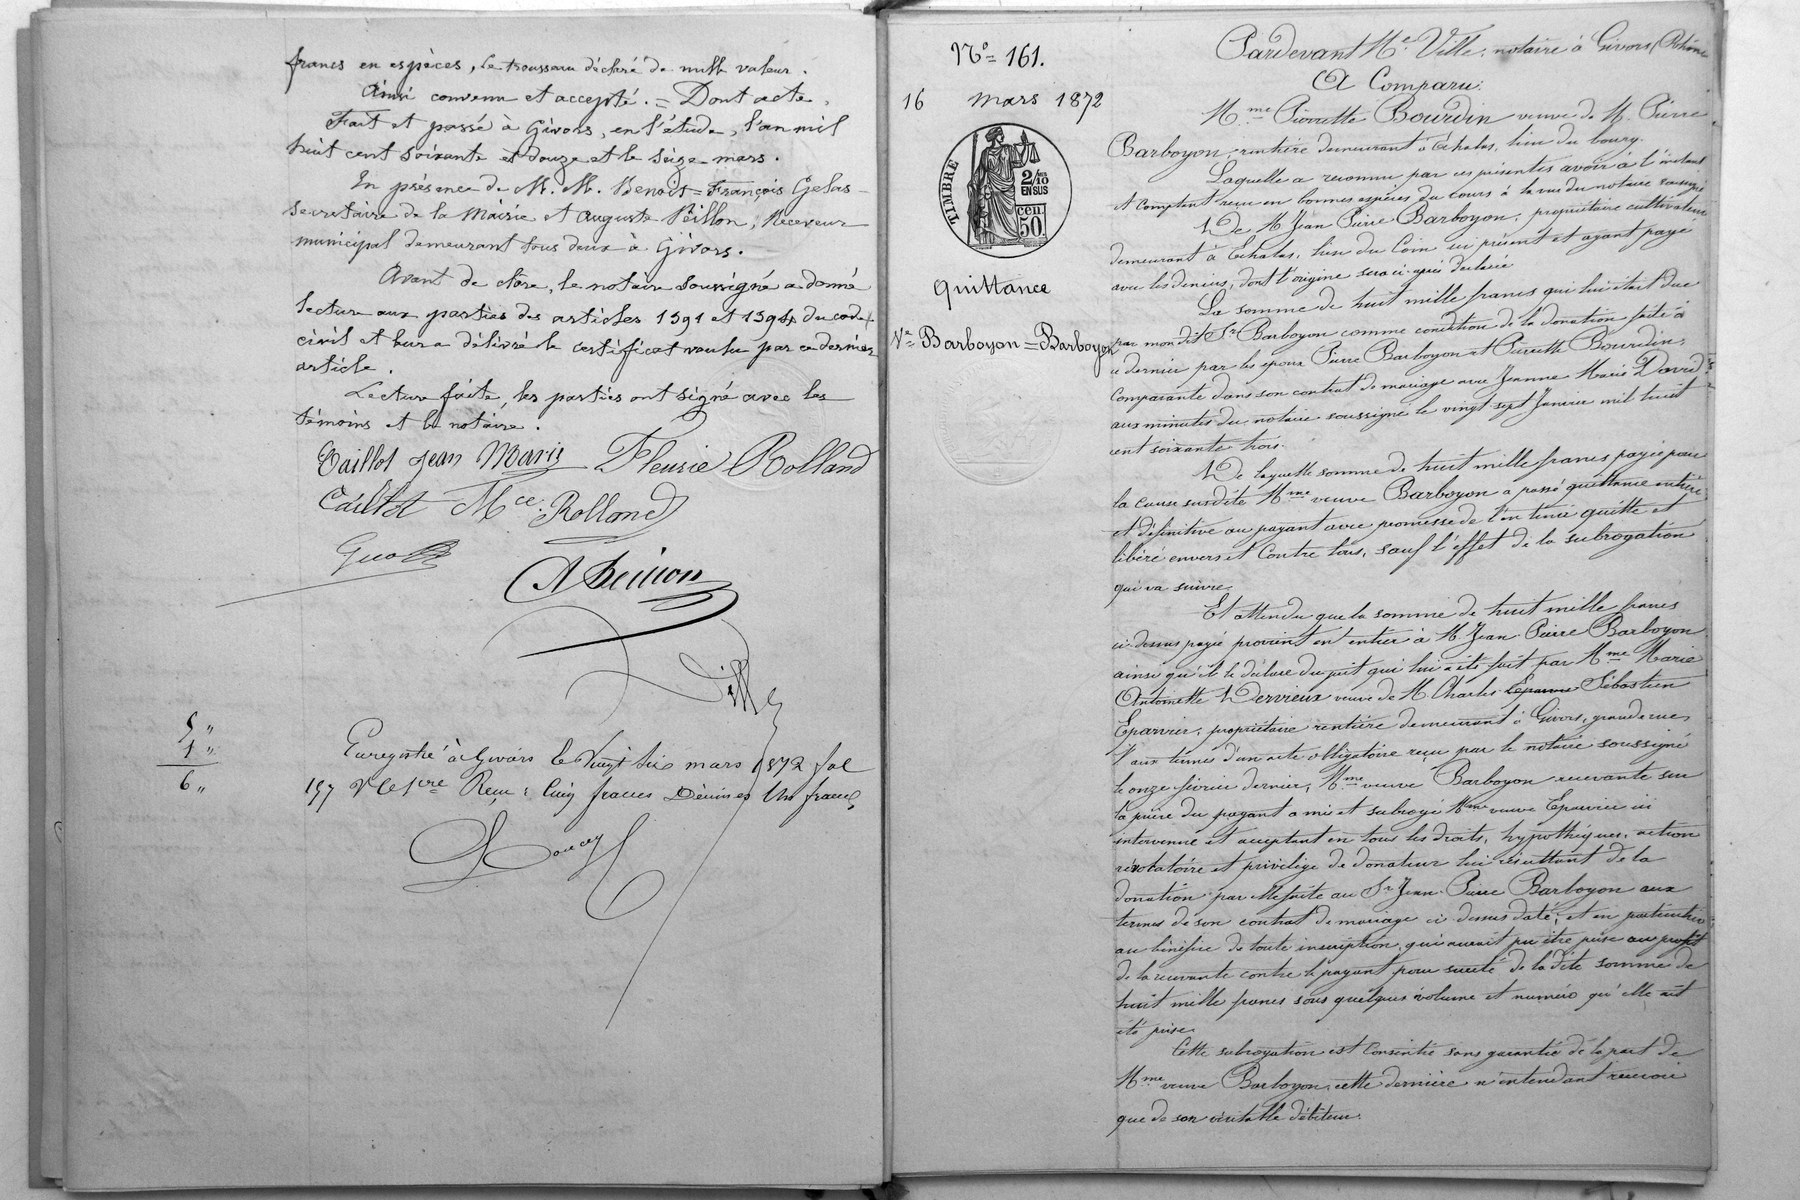 francs en espèces, le trousseau déclaré de nulle valeur.
Ainsi convenu et accepté. = Dont acte,
Fait et passé à Givors, en l'étude, l'an mil
huit cent soixante et douze et le seize mars.
En présence de M. M. Benoit = François Gelas
secrétaire de la Mairie et Auguste Peillon, Receveur
municipal demeurant tous deux à Givors.
Avant de clore, le notaire soussigné a donné
lecture aux parties des articles 1391 et 1394 du code
civil et leur a délivré le certificat voulu par ce dernier
article.
Lecture faite, les parties ont signé avec les
témoins et le notaire.
Caillot Jean Marie Fleurie Rolland
Caillot Rolland
A Peillon
Ville
5 "
1 "
6 "
Enregistré à Givors le vingt six mars 1872 fol
157 Vo Ce 1ere Reçu : Cinq francs Décimes Un franc
No 161.
16 mars 1872
TIMBRE
2/10
EN SUS
cen.
50
Quittance
Ve Barboyon = Barboyon
Pardevant Me Ville, notaire à Givors, (Rhône
A Comparu:
Mme Pierrette Bourdin veuve de M. Pierre
Barboyon, rentière demeurant à Echalas, lieu du bourg.
Laquelle a reconnu par ces présentes avoir à l'instant
et comptant reçu en bonnes espèces du cours à la vue du notaire soussigné
De M Jean Pierre Barboyon, propriétaire cultivateur
demeurant à Echalas, lieu du Coin ici présent et ayant payé
avec les deniers, dont l'origine sera ci-après déclarée
La somme de huit mille francs qui lui était due
par mondit Sr Barboyon comme condition de la donation faite à
ce dernier par les époux Pierre Barboyon et Pierrette Bourdin,
Comparante dans son contrat de mariage avec Jeanne Marie David
aux minutes du notaire soussigné le vingt sept Janvier mil huit
cent soixante trois.
De laquelle somme de huit mille francs payée pour
la cause susdite Mme veuve Barboyon a passé quittance entière
et définitive au payant avec promesse de l'en tenir quitte et
libéré envers et contre tous, sauf l'effet de la subrogation
qui va suivre.
Et attendu que la somme de huit mille francs
ci-dessus payée provient en entier à M. Jean Pierre Barboyon
ainsi qu'il le déclare du prêt qui lui a été fait par Mme Marie
Antoinette Dervieux veuve de M. Charles Sébastien
Eparvier, propriétaire rentière demeurant à Givors, grande rue,
aux termes d'un acte obligatoire reçu par le notaire soussigné
le onze février dernier, Mme veuve Barboyon recevante sur
la prière du payant a mis et subrogé Mme veuve Eparvier ici
intervenue et acceptant en tous les droits, hypothèques, action
révocatoire et privilège de donateur lui résultant de la
donation par elle faite au Sr Jean Pierre Barboyon aux
termes de son contrat de mariage ci dessus daté, et en particulier
au bénéfice de toute inscription, qui aurait pu être prise au profit
de la recevante contre le payant pour sureté de la dite somme de
huit mille francs sous quelques volume et numéro qu'elle ait
été prise.
Cette subrogation est consentie sans garantie de la part de
Mme veuve Barboyon, cette dernière n'entendant recevoir
que de son véritable débiteur.